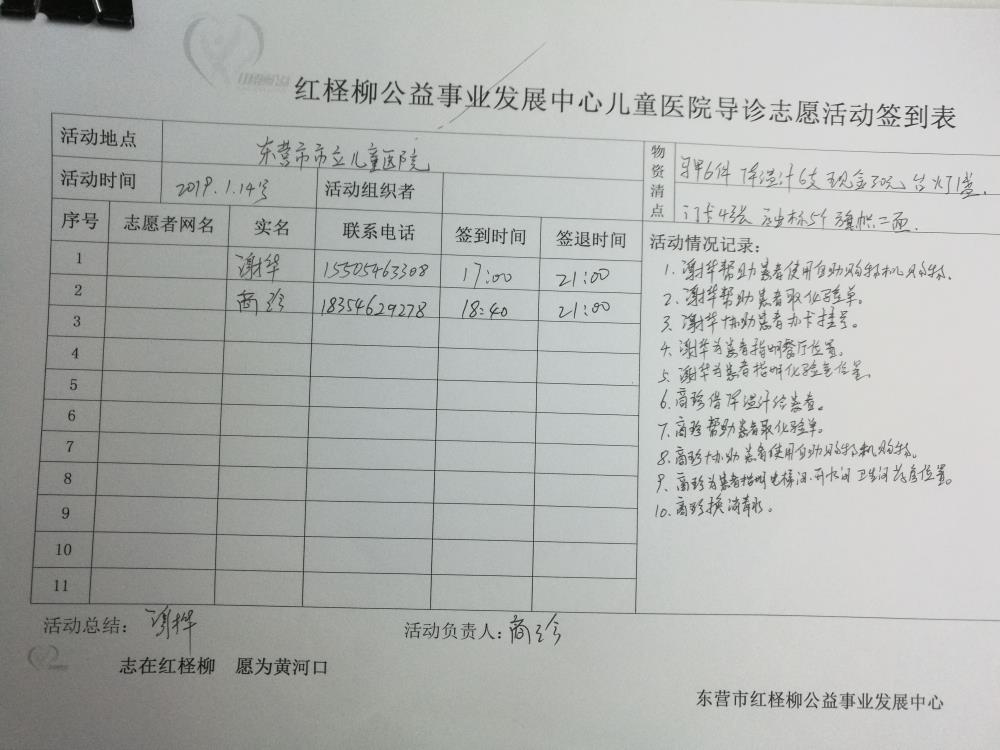 红柽柳公益事业发展中心儿童医院导诊志愿活动签到表
活动地点 东营市市立儿童医院
物资清点
马甲6件 体温计6支 现金30元 台灯1盏
门卡4张 油标5个 旗帜二面
活动时间 2019.1.14号 活动组织者
序号 志愿者网名 实名 联系电话 签到时间 签退时间
1 谢桦 15505463308 17:00 21:00
2 商珍 18354629278 18:40 21:00
3
4
5
6
7
8
9
10
11
活动情况记录:
1、谢桦帮助患者使用自助购物机购物。
2、谢桦帮助患者取化验单。
3、谢桦协助患者办卡挂号。
4、谢桦为患者指明餐厅位置。
5、谢桦为患者指明化验室位置。
6、商珍借体温计给患者。
7、商珍帮助患者取化验单。
8、商珍协助患者使用自助购物机购物。
9、商珍为患者指明电梯间、开水间、卫生间、药房位置。
10、商珍换消毒水。
活动总结: 谢桦
活动负责人: 商珍
志在红柽柳 愿为黄河口
东营市红柽柳公益事业发展中心